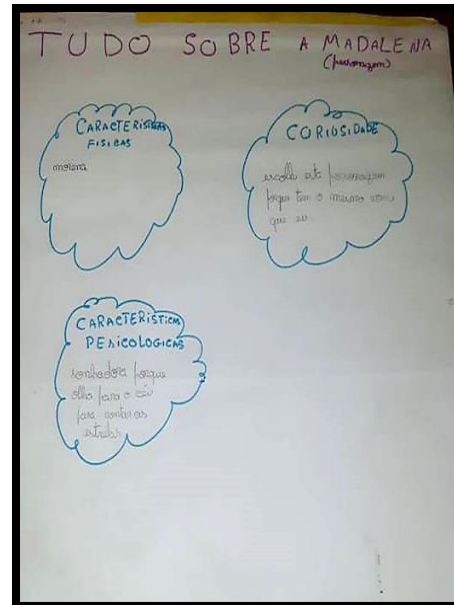 TUDO SOBRE A MADALENA
(personagem)
CARACTERÍSTICAS
FISICAS
morena
CORIOSIDADE
escolhi esta personagem
porque tem o mesmo nome
que eu.
CARACTERÍSTICAS
PESICOLOGICAS
sonhadora porque
olha para o céu
para contar as
estrelas